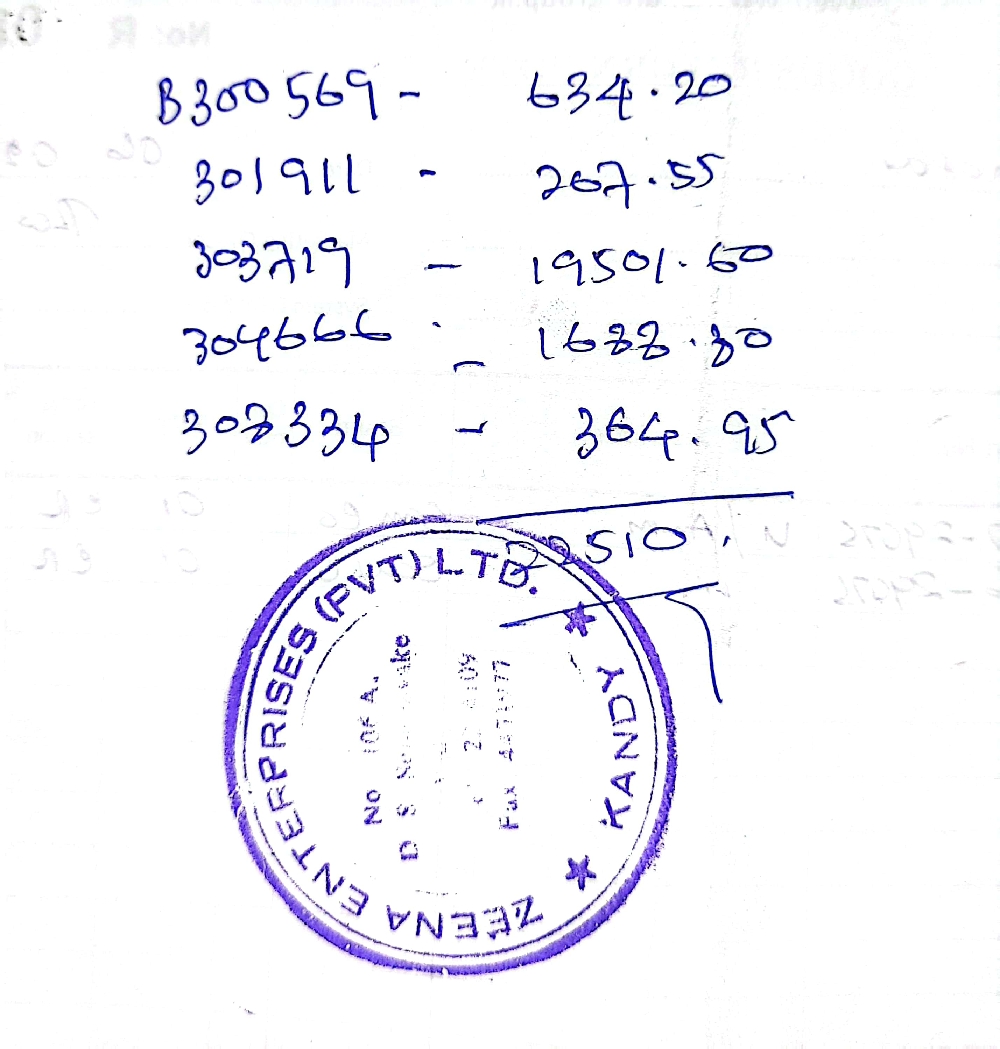 B300569 - 634.20
301911 - 267.55
303719 - 19501.60
304666 - 1688.30
308334 - 364.95
22510.
ZEENA ENTERPRISES (PVT) LTD. ★ KANDY ★
No
D S
Fax